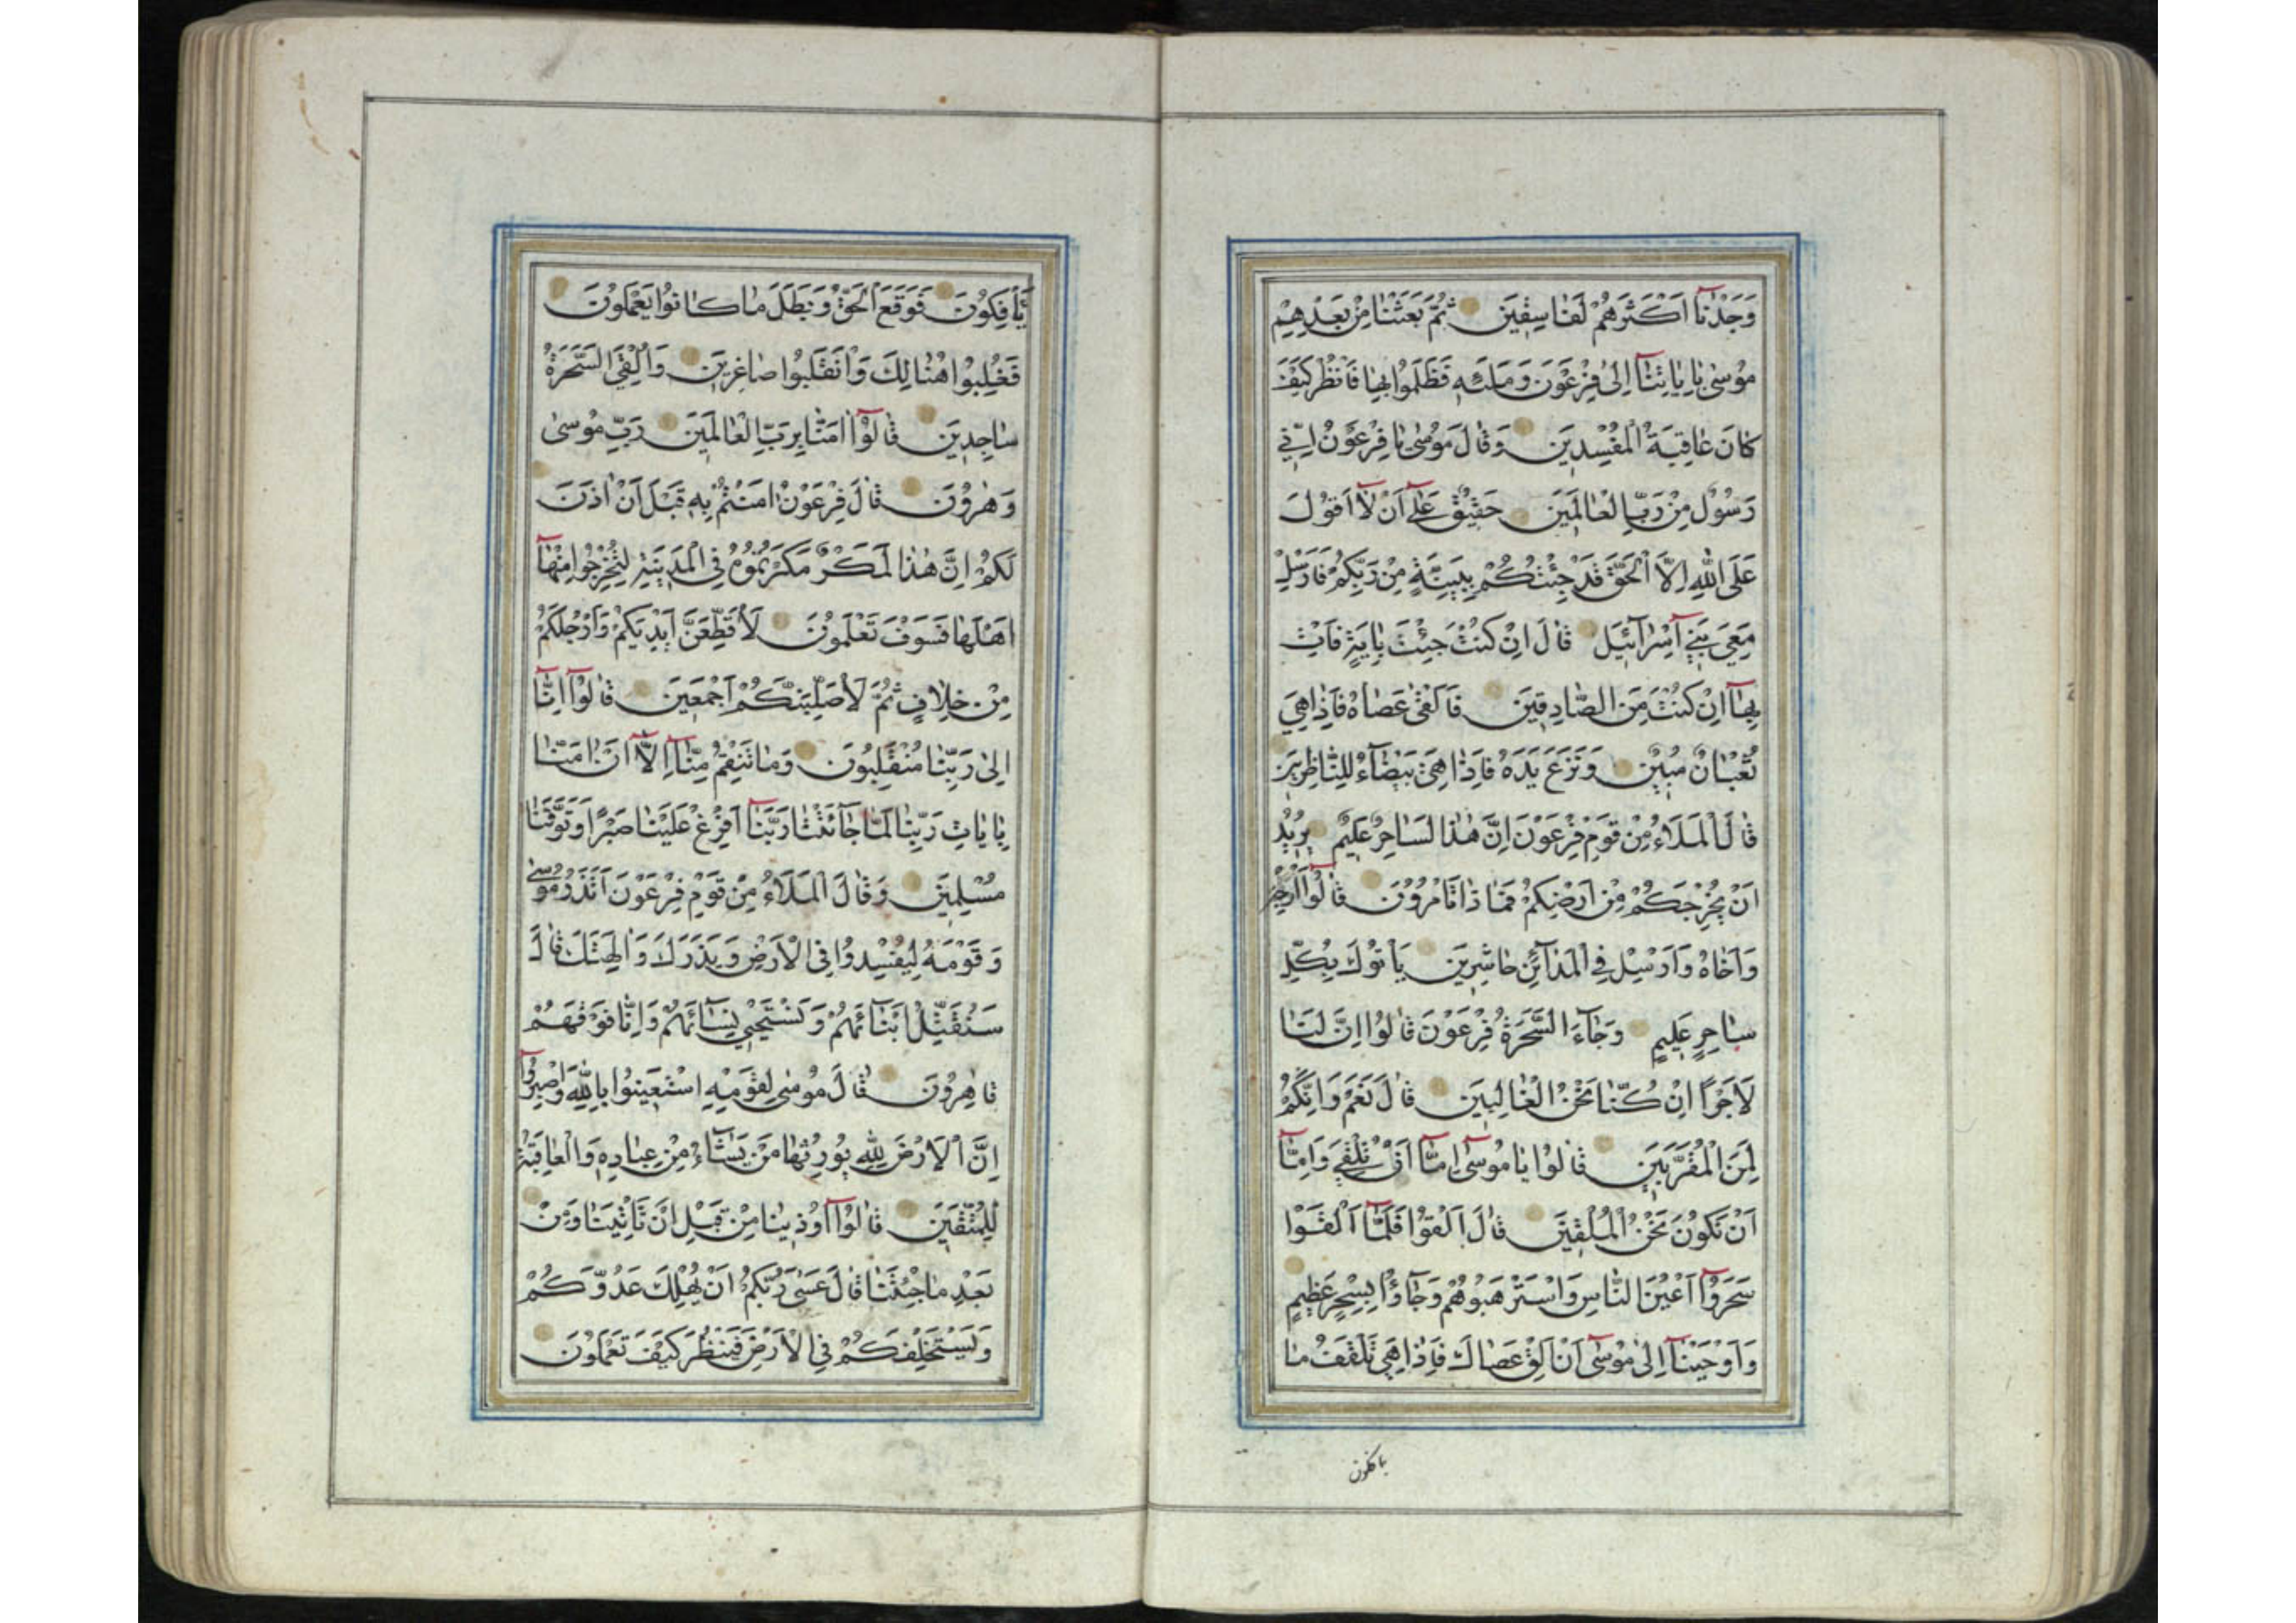 وَجَدْنَآ اَكْثَرَهُمْ لَفَاسِقِينَ ثُمَّ بَعَثْنَا مِنْ بَعْدِهِمْ
مُوسٰى بِاٰيَاتِنَآ اِلٰى فِرْعَوْنَ وَمَلَئِهِ فَظَلَمُوا بِهَا فَانْظُرْ كَيْفَ
كَانَ عَاقِبَةُ الْمُفْسِدِينَ وَقَالَ مُوسٰى يَا فِرْعَوْنُ اِنِّي
رَسُولٌ مِنْ رَبِّ الْعَالَمِينَ حَقِيقٌ عَلٰٓى اَنْ لَآ اَقُولَ
عَلَى اللّٰهِ اِلَّا الْحَقَّ قَدْ جِئْتُكُمْ بِبَيِّنَةٍ مِنْ رَبِّكُمْ فَاَرْسِلْ
مَعِيَ بَنِيٓ اِسْرَآئِيلَ قَالَ اِنْ كُنْتَ جِئْتَ بِاٰيَةٍ فَاْتِ
بِهَآ اِنْ كُنْتَ مِنَ الصَّادِقِينَ فَاَلْقٰى عَصَاهُ فَاِذَا هِيَ
ثُعْبَانٌ مُبِينٌ وَنَزَعَ يَدَهُ فَاِذَا هِيَ بَيْضَآءُ لِلنَّاظِرِينَ
قَالَ الْمَلَاُ مِنْ قَوْمِ فِرْعَوْنَ اِنَّ هٰذَا لَسَاحِرٌ عَلِيمٌ يُرِيدُ
اَنْ يُخْرِجَكُمْ مِنْ اَرْضِكُمْ فَمَا ذَا تَاْمُرُونَ قَالُوٓا اَرْجِهْ
وَاَخَاهُ وَاَرْسِلْ فِي الْمَدَآئِنِ حَاشِرِينَ يَاْتُوكَ بِكُلِّ
سَاحِرٍ عَلِيمٍ وَجَآءَ السَّحَرَةُ فِرْعَوْنَ قَالُوا اِنَّ لَنَا
لَاَجْرًا اِنْ كُنَّا نَحْنُ الْغَالِبِينَ قَالَ نَعَمْ وَاِنَّكُمْ
لَمِنَ الْمُقَرَّبِينَ قَالُوا يَا مُوسٰٓى اِمَّآ اَنْ تُلْقِيَ وَاِمَّآ
اَنْ نَكُونَ نَحْنُ الْمُلْقِينَ قَالَ اَلْقُوا فَلَمَّآ اَلْقَوْا
سَحَرُوٓا اَعْيُنَ النَّاسِ وَاسْتَرْهَبُوهُمْ وَجَآؤُا بِسِحْرٍ عَظِيمٍ
وَاَوْحَيْنَآ اِلٰى مُوسٰٓى اَنْ اَلْقِ عَصَاكَ فَاِذَا هِيَ تَلْقَفُ مَا
يافكون
يَاْفِكُونَ فَوَقَعَ الْحَقُّ وَبَطَلَ مَا كَانُوا يَعْمَلُونَ
فَغُلِبُوا هُنَالِكَ وَانْقَلَبُوا صَاغِرِينَ وَاُلْقِيَ السَّحَرَةُ
سَاجِدِينَ قَالُوٓا اٰمَنَّا بِرَبِّ الْعَالَمِينَ رَبِّ مُوسٰى
وَهٰرُونَ قَالَ فِرْعَوْنُ اٰمَنْتُمْ بِهِ قَبْلَ اَنْ اٰذَنَ
لَكُمْ اِنَّ هٰذَا لَمَكْرٌ مَكَرْتُمُوهُ فِي الْمَدِينَةِ لِتُخْرِجُوا مِنْهَآ
اَهْلَهَا فَسَوْفَ تَعْلَمُونَ لَاُقَطِّعَنَّ اَيْدِيَكُمْ وَاَرْجُلَكُمْ
مِنْ خِلَافٍ ثُمَّ لَاُصَلِّبَنَّكُمْ اَجْمَعِينَ قَالُوٓا اِنَّآ
اِلٰى رَبِّنَا مُنْقَلِبُونَ وَمَا تَنْقِمُ مِنَّآ اِلَّآ اَنْ اٰمَنَّا
بِاٰيَاتِ رَبِّنَا لَمَّا جَآءَتْنَا رَبَّنَآ اَفْرِغْ عَلَيْنَا صَبْرًا وَتَوَفَّنَا
مُسْلِمِينَ وَقَالَ الْمَلَاُ مِنْ قَوْمِ فِرْعَوْنَ اَتَذَرُ مُوسٰى
وَقَوْمَهُ لِيُفْسِدُوا فِي الْاَرْضِ وَيَذَرَكَ وَاٰلِهَتَكَ قَالَ
سَنُقَتِّلُ اَبْنَآئَهُمْ وَنَسْتَحْيِي نِسَآئَهُمْ وَاِنَّا فَوْقَهُمْ
قَاهِرُونَ قَالَ مُوسٰى لِقَوْمِهِ اسْتَعِينُوا بِاللّٰهِ وَاصْبِرُوٓا
اِنَّ الْاَرْضَ لِلّٰهِ يُورِثُهَا مَنْ يَشَآءُ مِنْ عِبَادِهِ وَالْعَاقِبَةُ
لِلْمُتَّقِينَ قَالُوٓا اُوذِينَا مِنْ قَبْلِ اَنْ تَاْتِيَنَا وَمِنْ
بَعْدِ مَا جِئْتَنَا قَالَ عَسٰى رَبُّكُمْ اَنْ يُهْلِكَ عَدُوَّكُمْ
وَيَسْتَخْلِفَكُمْ فِي الْاَرْضِ فَيَنْظُرَ كَيْفَ تَعْمَلُونَ